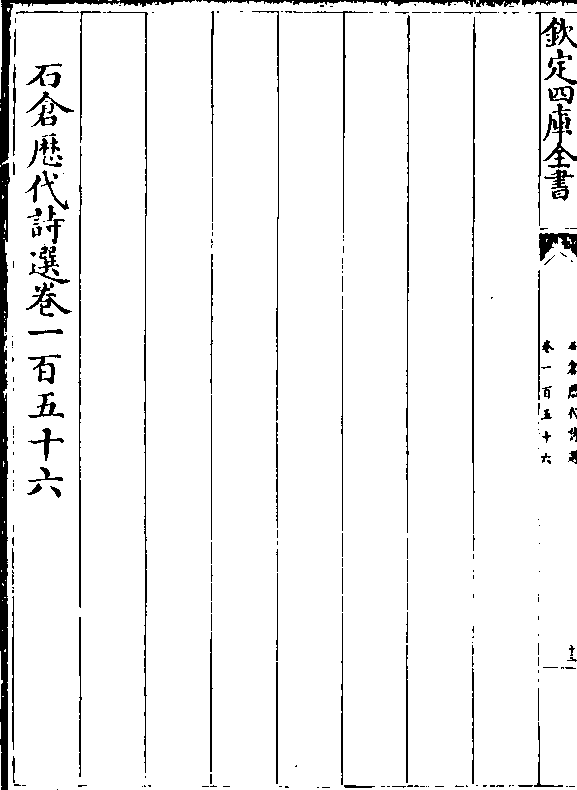 欽定四庫全書
石倉歷代詩選
卷一百五十六
石倉歷代詩選卷一百五十六